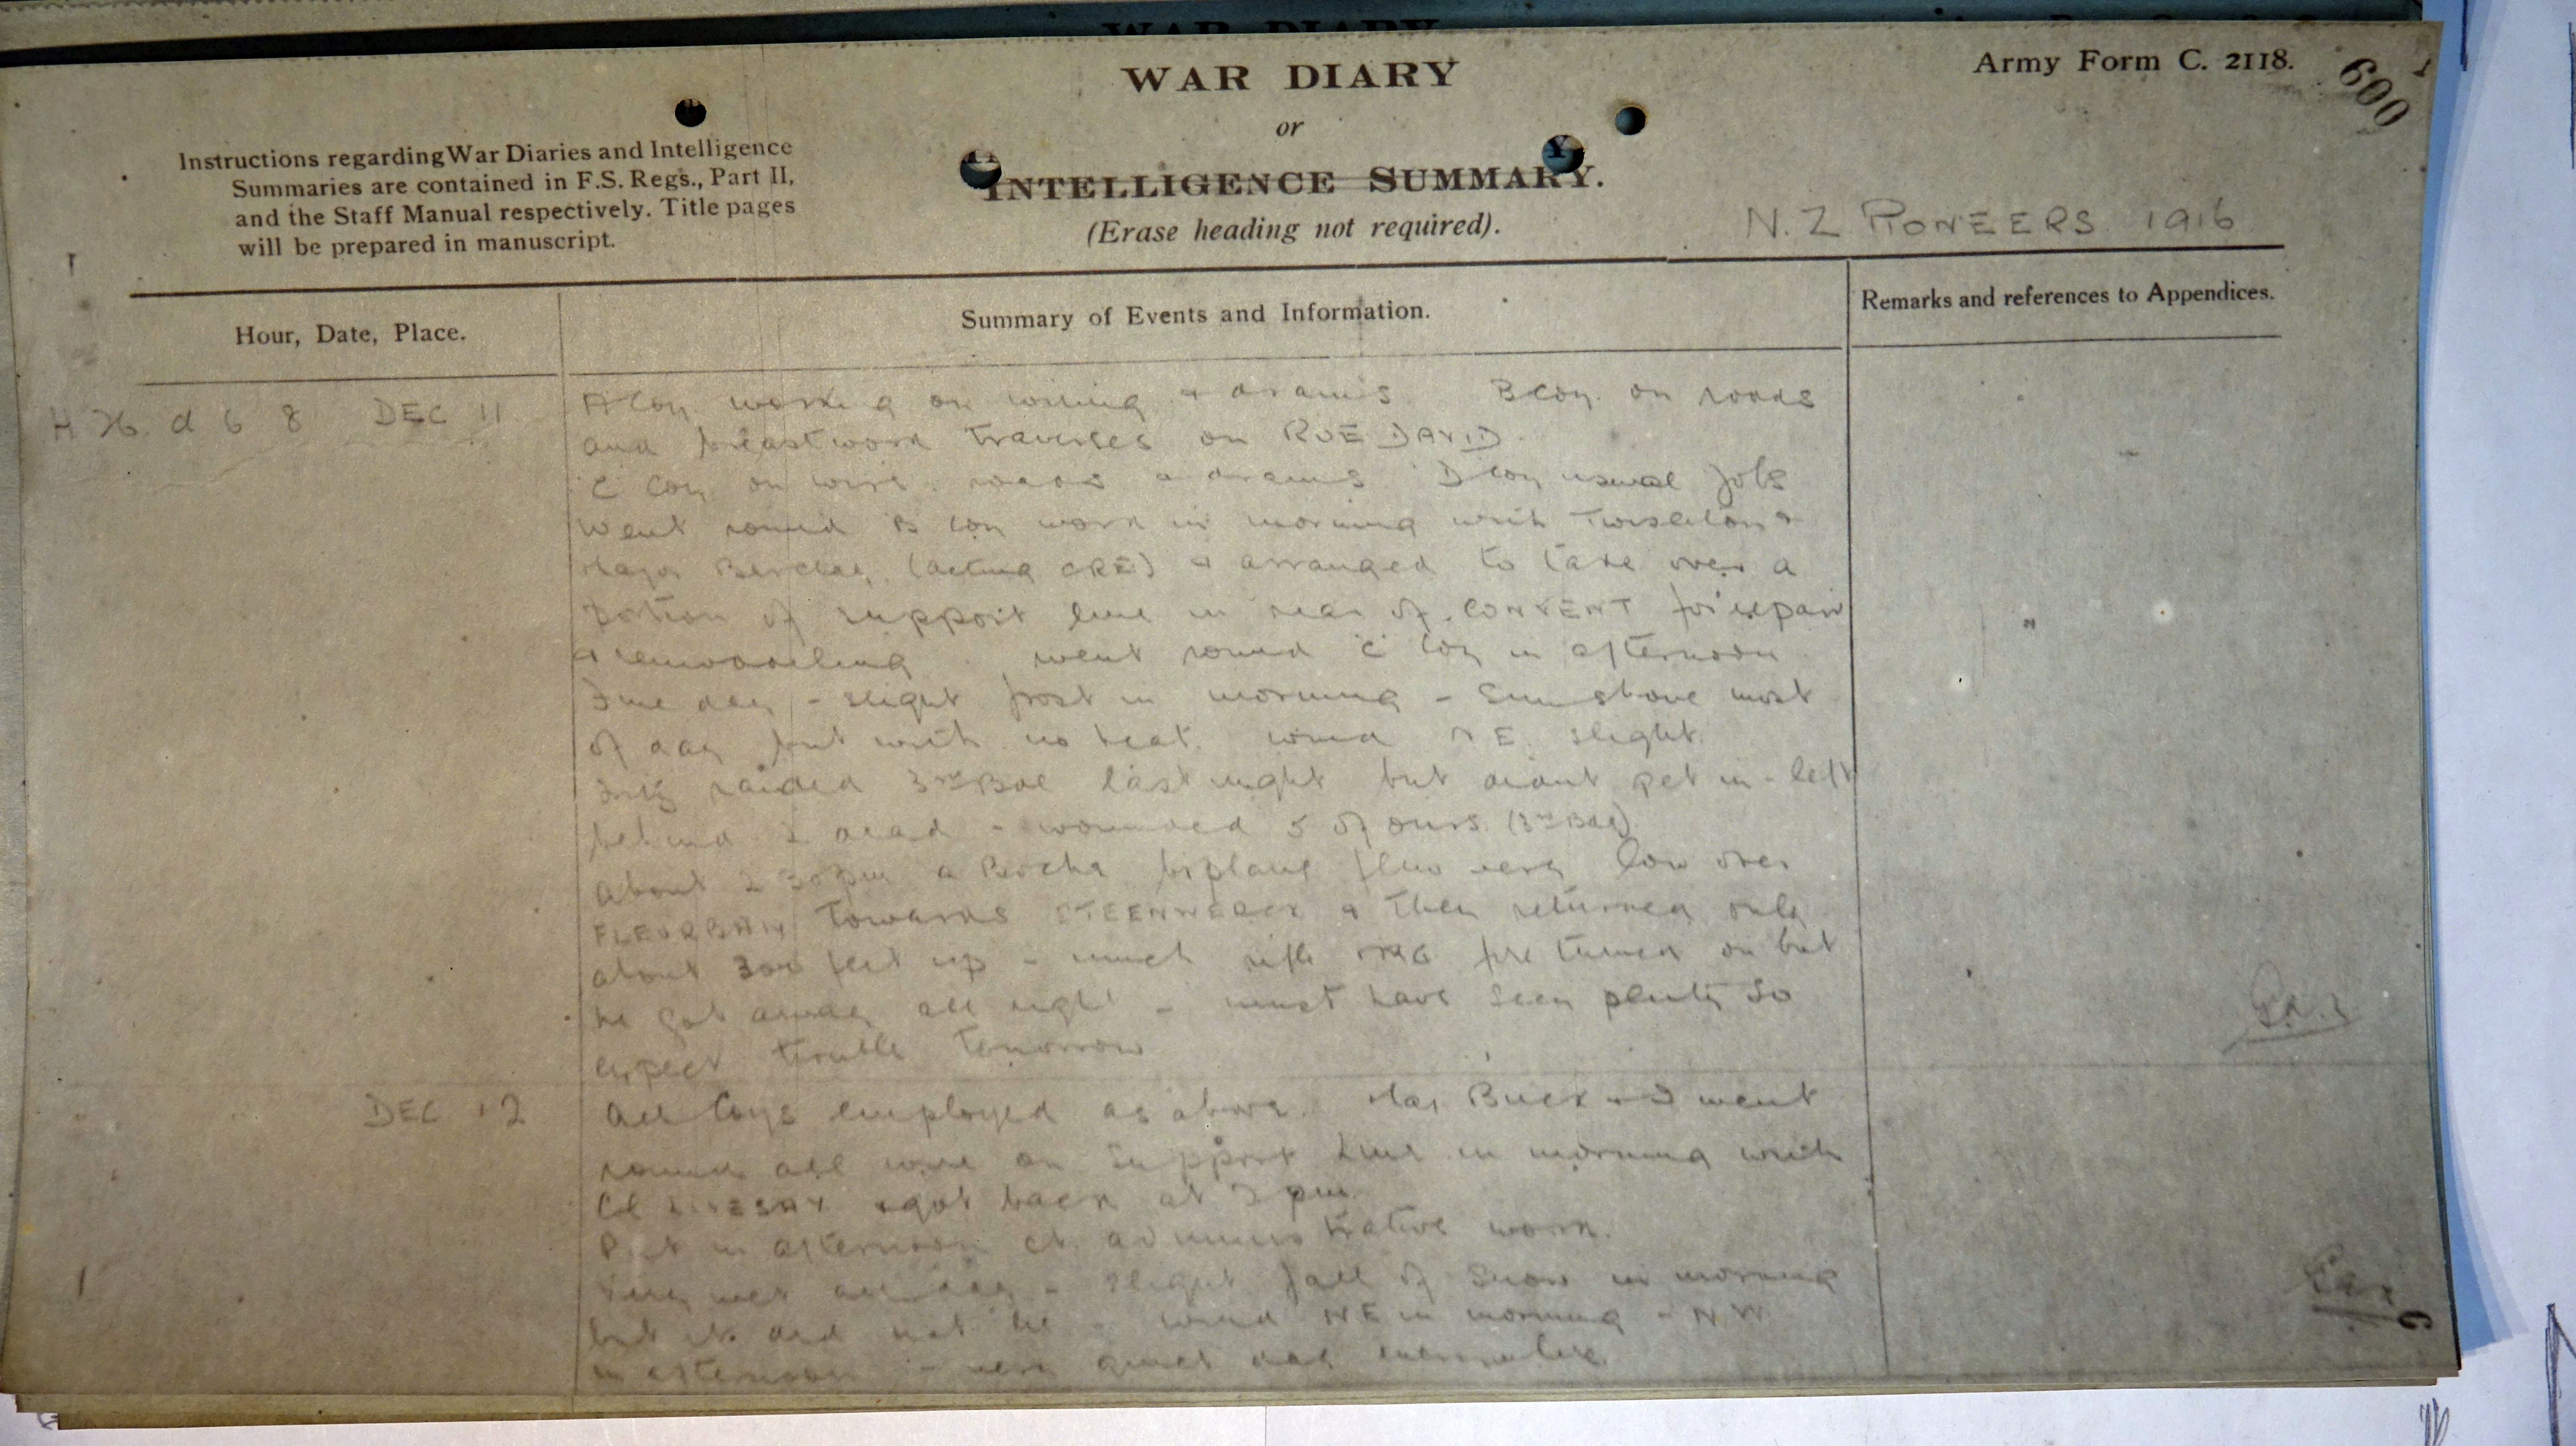 WAR DIARY
Army Form C. 2118.
600
or
Instructions regarding War Diaries and Intelligence
Summaries are contained in F.S. Regs., Part II,
and the Staff Manual respectively. Title pages
will be prepared in manuscript.
INTELLIGENCE SUMMARY.
(Erase heading not required).
N. Z. PIONEERS. 1916
Hour, Date, Place.
Summary of Events and Information.
Remarks and references to Appendices.
H 26 d 6 8 DEC 11
A Coy working on wiring & drains. B Coy. on roads
and breastwork traverses on RUE DAVID.
C Coy on wire, roads & drains. D Coy usual jobs
Went round B Coy work in morning with Twisleton &
Major (acting CRE) & arranged to take over a
portion of support line in rear of CONVENT for repair
& remodelling. went round C Coy in afternoon
Fine day - slight frost in morning - Sun shone most
of day but with no heat. wind NE. slight.
Fritz raided 3rd Bde last night but didnt get in - left
behind 2 dead - wounded 5 of ours. (3rd Bde)
About 2 30 pm a Boche biplane flew very low over
FLEURBAIX towards STEENWERCK & then returned only
about 300 feet up - much rifle & MG fire turned on but
he got away all right - must have seen plenty so
expect trouble tomorrow
DEC 12
All Coys employed as above. Maj Buck & I went
round all wire on Support Line in morning with
Col got back at pm
Put in afternoon at administrative work.
Very wet all day - slight fall of snow in morning
but it did not lie - wind NE in morning - NW
in afternoon - very quiet day